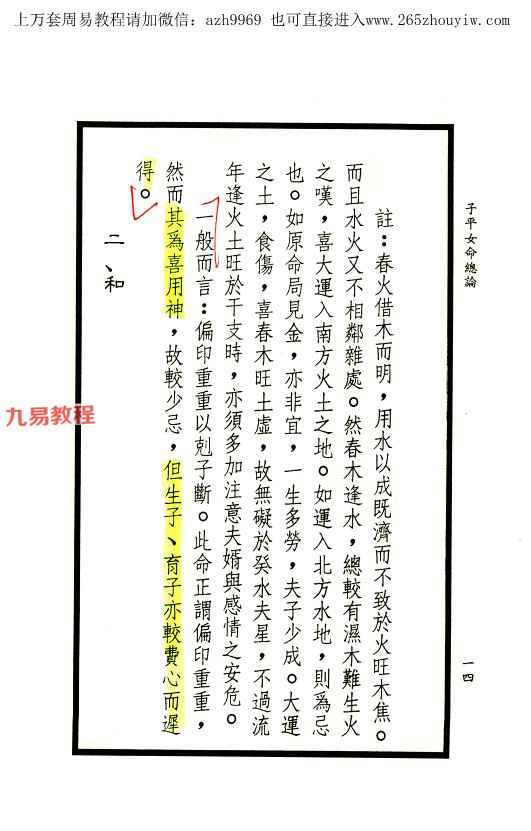 上万套周易教程请加微信：azh9969 也可直接进入www.265zhouyiw.com
子平女命總論
一四
註：春火借木而明，用水以成既濟而不致於火旺木焦。
而且水火又不相鄰雜處。然春木逢水，總較有濕木難生火
之嘆，喜大運入南方火土之地。如運入北方水地，則爲忌
也。如原命局見金，亦非宜，一生多勞，夫子少成。大運
之土，食傷，喜春木旺土虛，故無礙於癸水夫星，不過流
年逢火土旺於干支時，亦須多加注意夫婿與感情之安危。
一般而言：偏印重重以剋子斷。此命正謂偏印重重，
然而其爲喜用神，故較少忌，但生子、育子亦較費心而遲
得。
二、和
九易教程